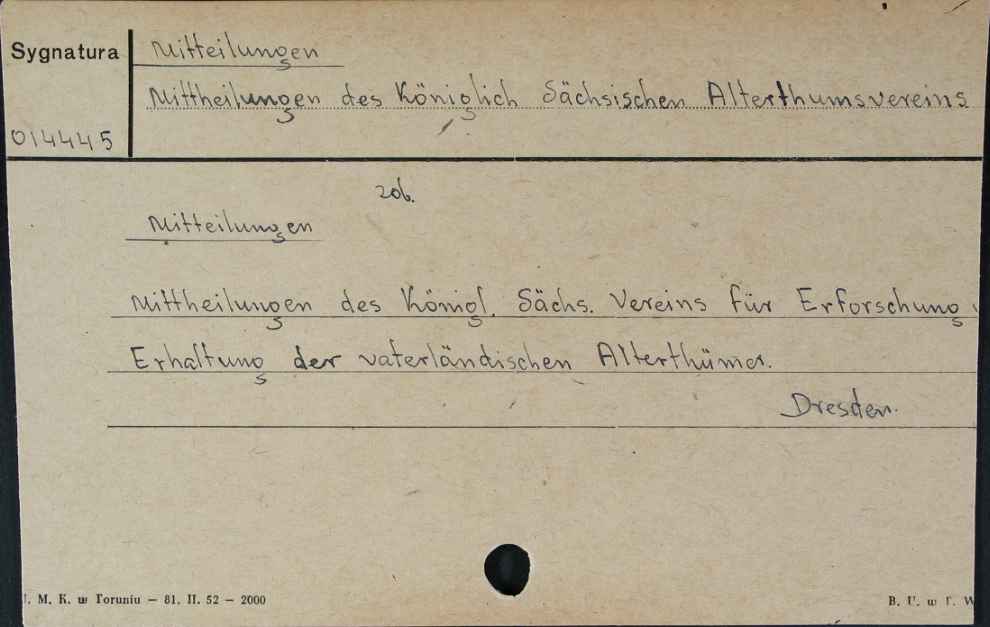 Sygnatura
Mitteilungen
Mittheilungen des Königlich Sächsischen Alterthumsvereins
014445
zob.
Mitteilungen
Mittheilungen des Königl. Sächs. Vereins für Erforschung
Erhaltung der vaterländischen Alterthümer.
Dresden.
M. K. w Toruniu — 81. II. 52 — 2000
B. U. w T.